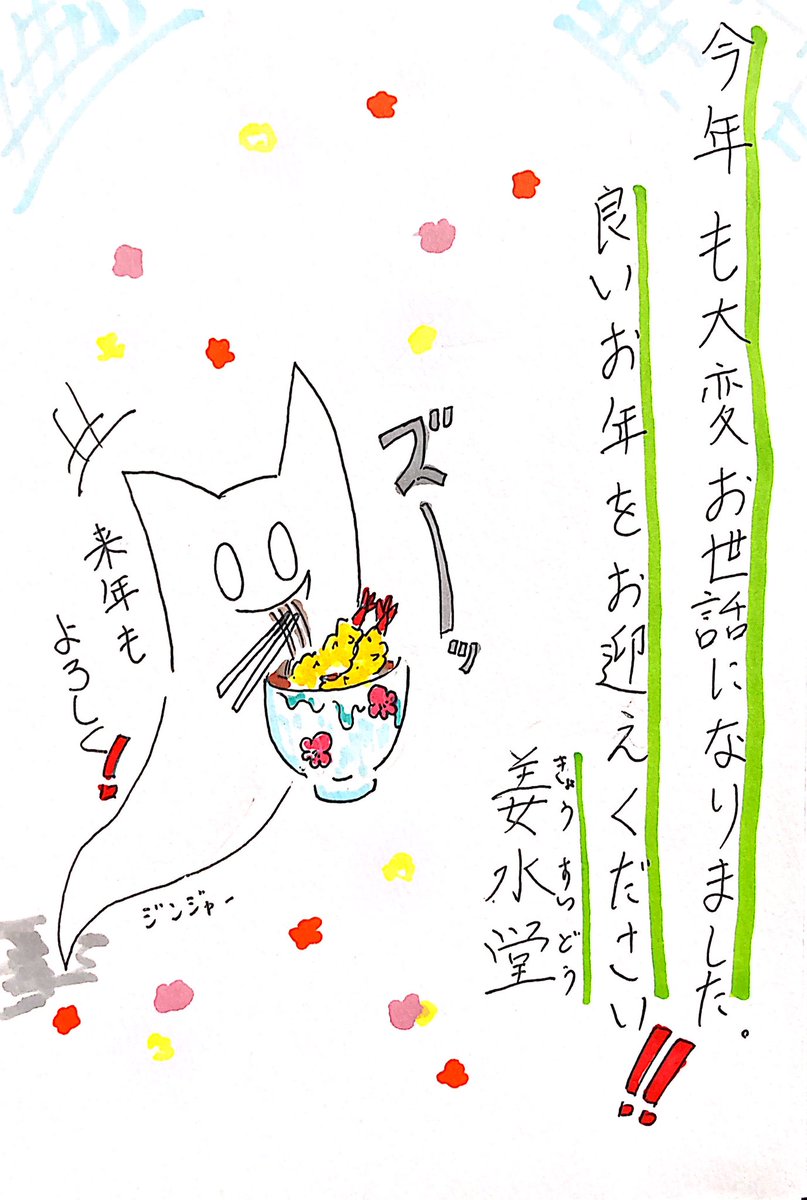 今年も大変お世話になりました。
良いお年をお迎えください!!
姜水堂
きょうすいどう
ズーッ
来年も
よろしく!
ジンジャー